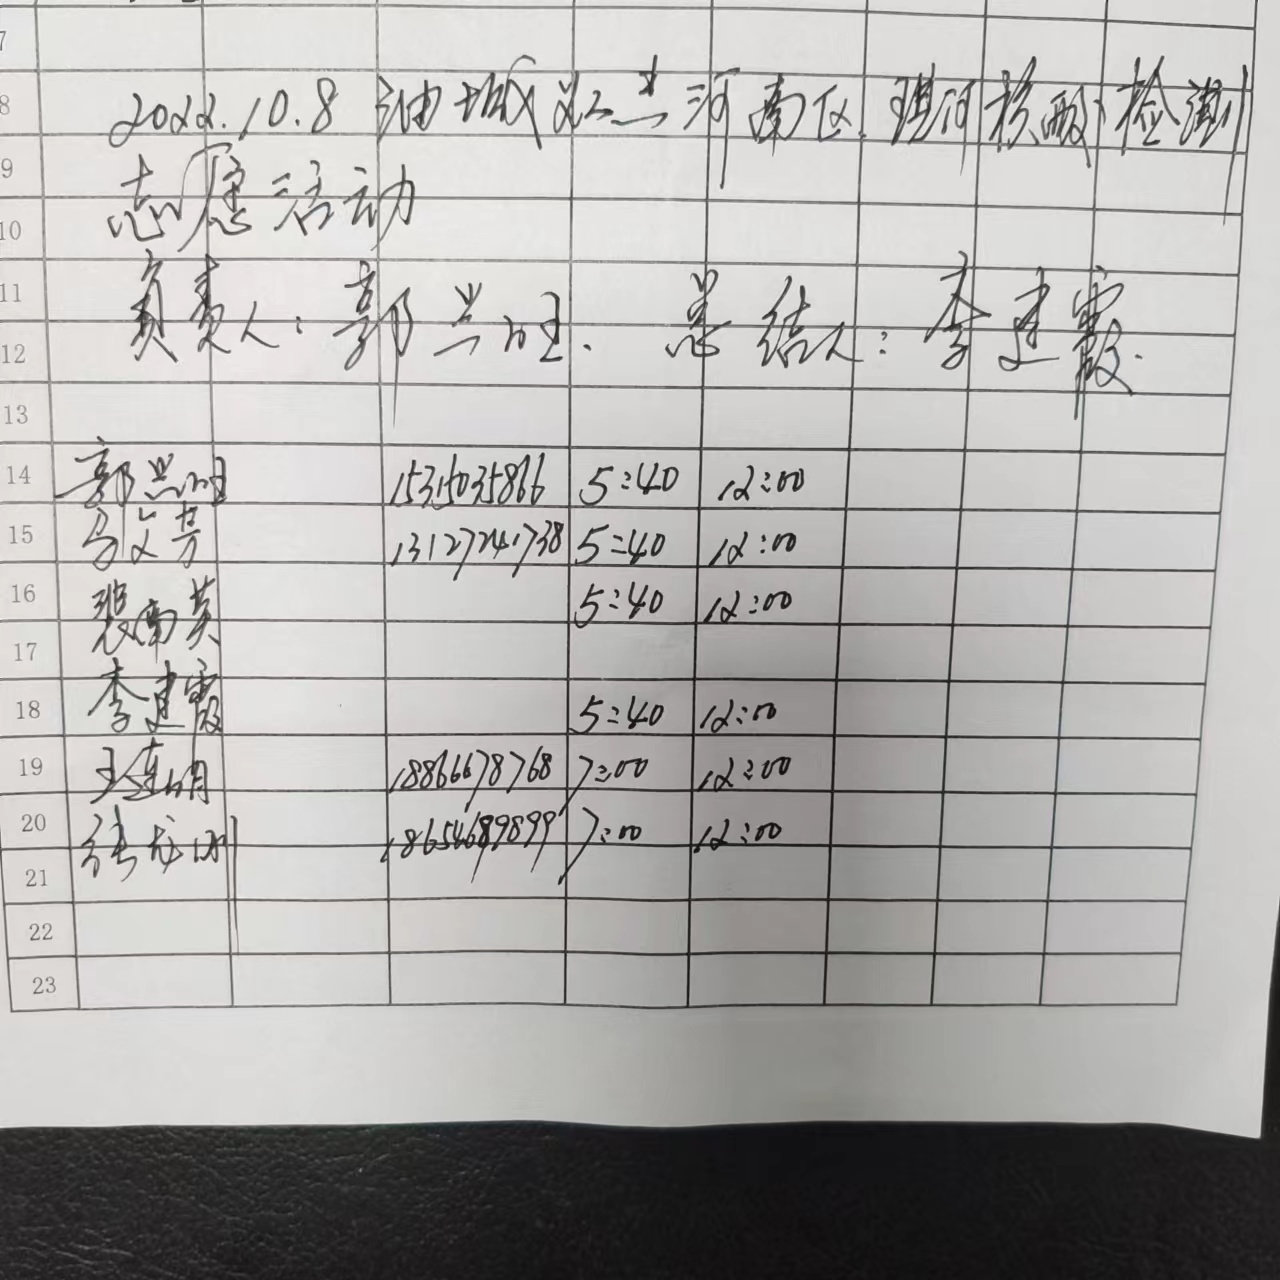 7
8 2022.10.8 油城义工兰河南区 现何核酸检测
9 志愿活动
10
11 负责人：郭兴旺. 总结人：李建霞.
12
13
14 郭兴旺 15315035866 5:40 12:00
15 马文芳 13127241738 5:40 12:00
16 裴南英 5:40 12:00
17
18 李建霞 5:40 12:00
19 王连明 18866678768 7:00 12:00
20 18654689899 7:00 12:00
21
22
23